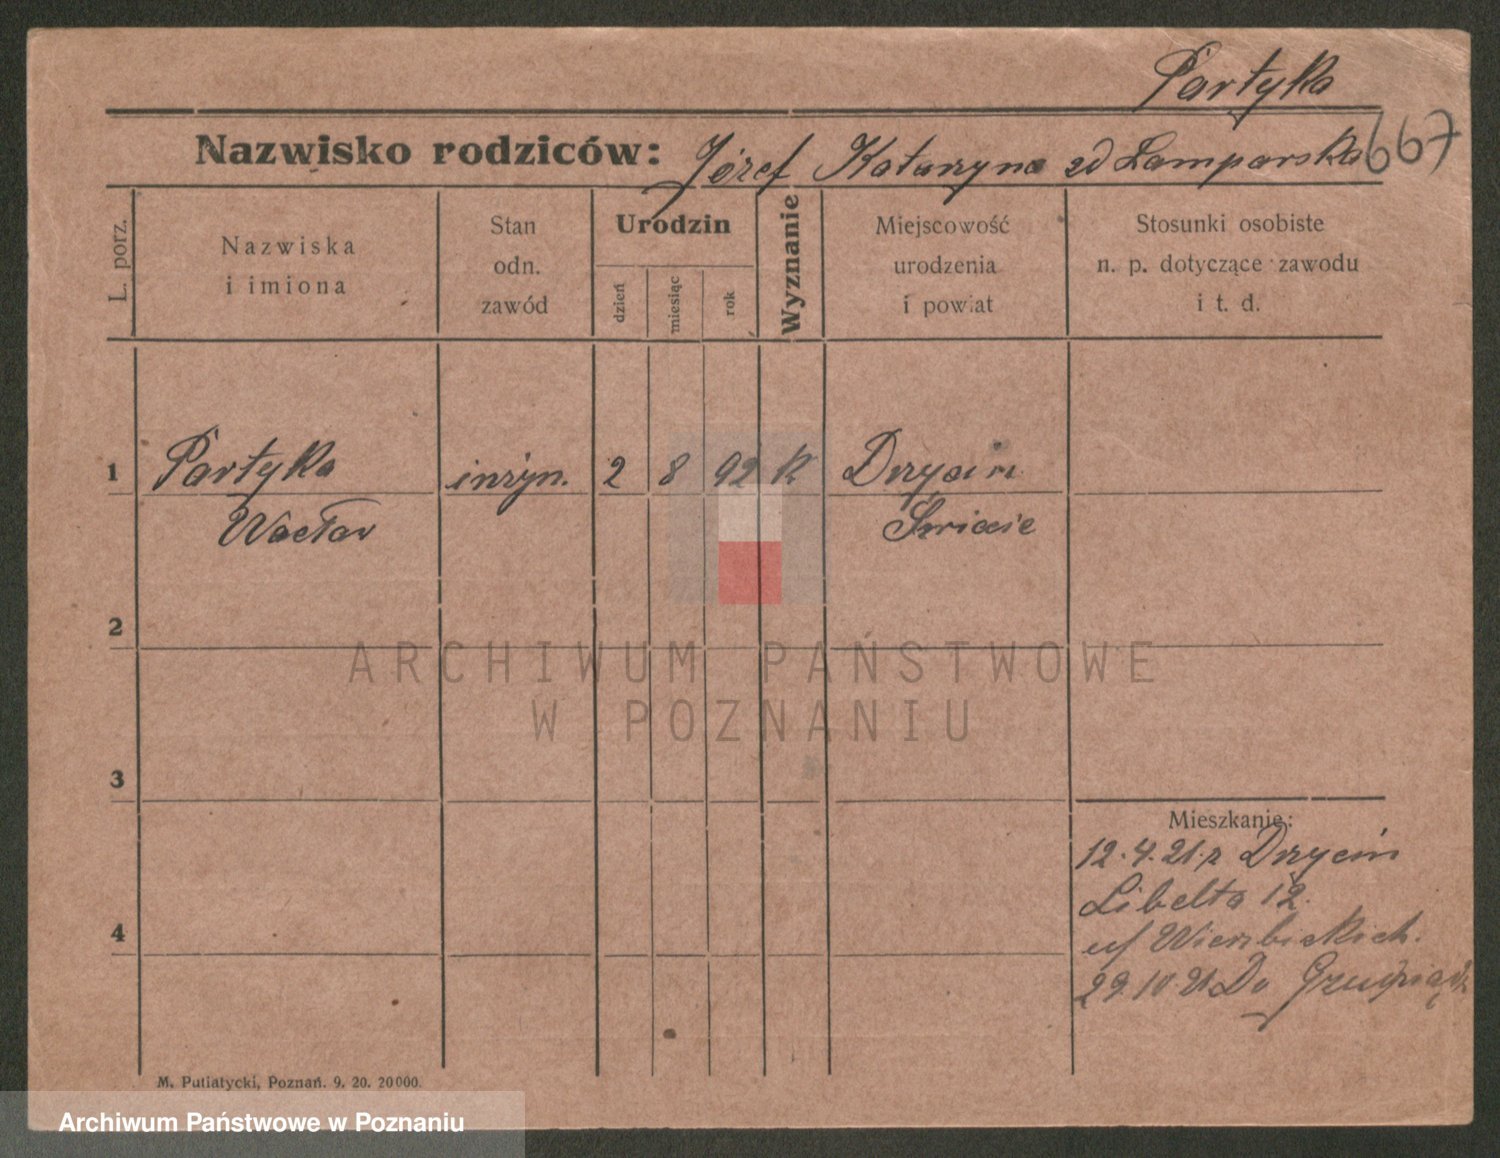 Partyka
667
Nazwisko rodziców: Józef Katarzyna zd Lamparska
L. porz.
Nazwiska
i imiona
Stan
odn.
zawód
Urodzin
dzień
miesiąc
rok
Wyznanie
Miejscowość
urodzenia
i powiat
Stosunki osobiste
n. p. dotyczące zawodu
i t. d.
1 Partyka inżyn. 2 8 92 K Drzycim
Wacław Świecie
2
ARCHIWUM PAŃSTWOWE
W POZNANIU
3
Mieszkanie:
12.4.21. z Drzycim
Libelta 12.
4
u/ Wierzbickich.
29.10.21 Do Grudziądz
M. Putiatycki, Poznań. 9. 20. 20000.
Archiwum Państwowe w Poznaniu